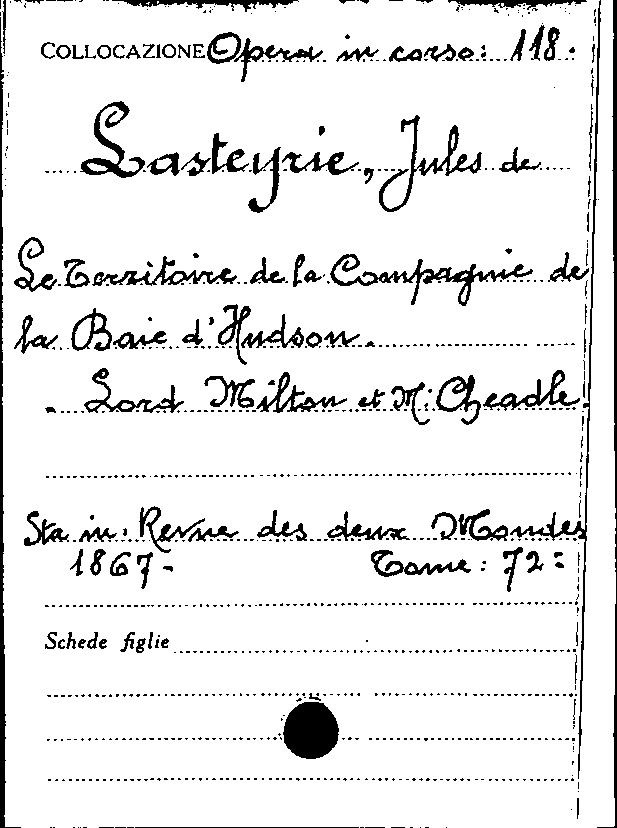 COLLOCAZIONE Opera in corso: 118.
Lasteyrie, Jules de
Le Territoire de la Compagnie de
la Baie d'Hudson.
. Lord Milton et M: Cheadle.
Sta in. Revue des deux Mondes
1867- Tome: 72=
Schede figlie